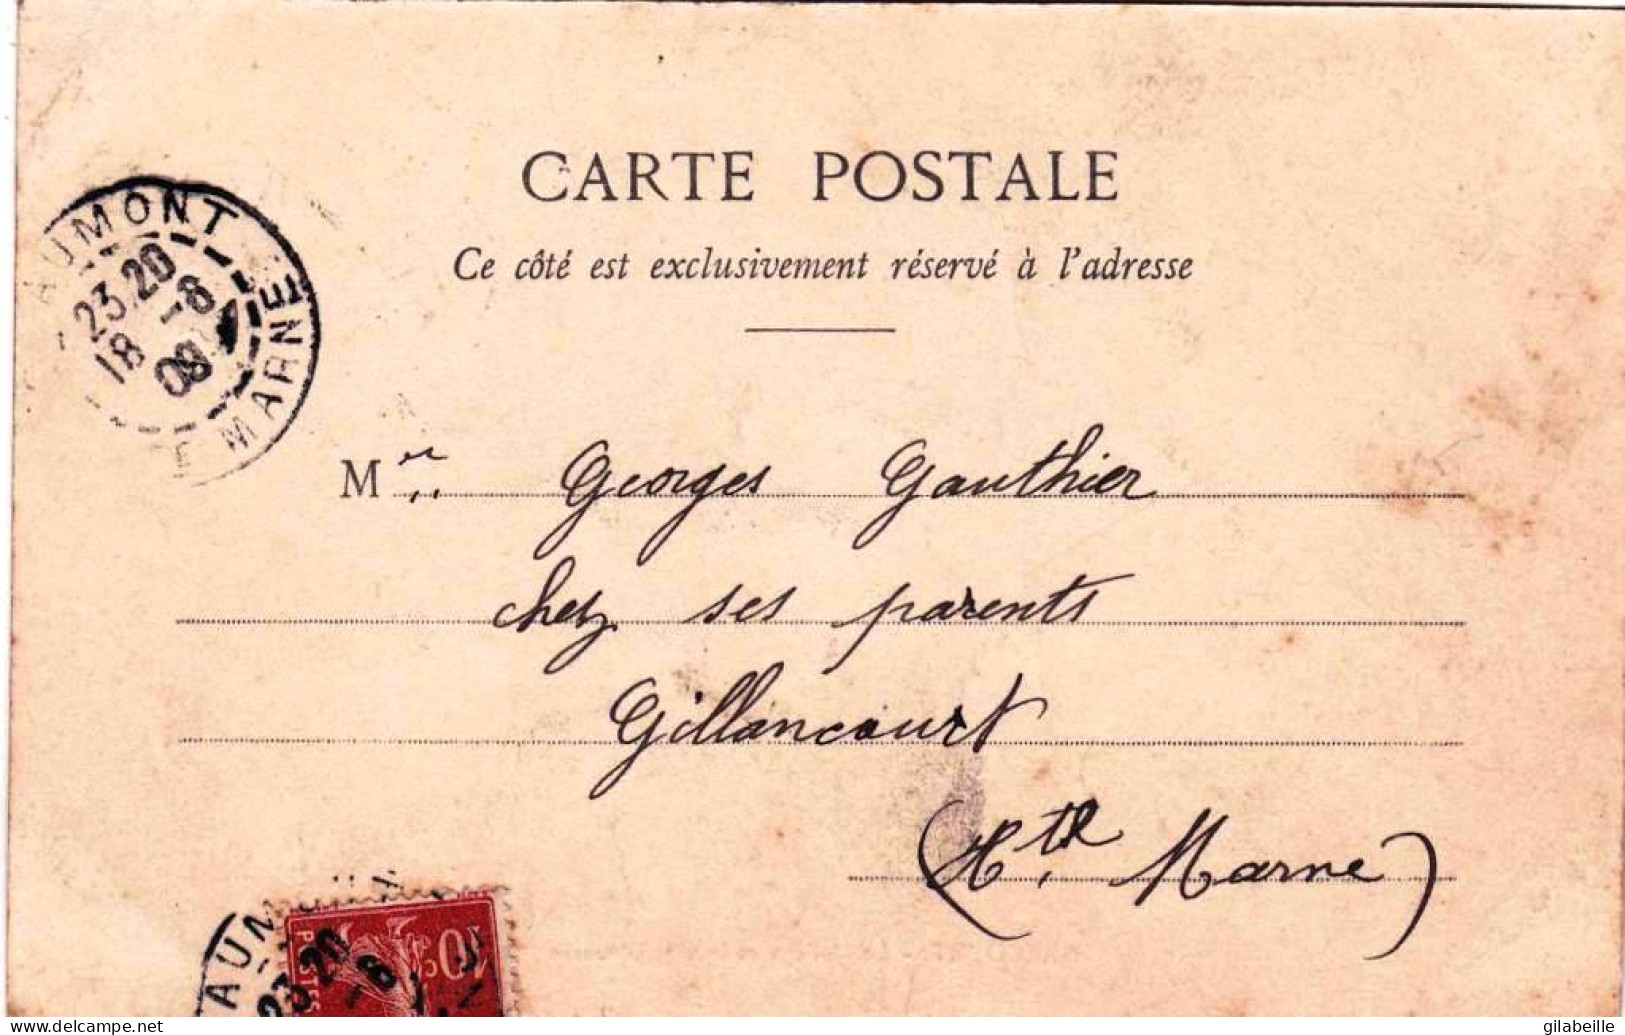 CARTE POSTALE
Ce côté est exclusivement réservé à l'adresse
AUMONT
23.20
18 -8
09
E MARNE
M Georges Gauthier
chez ses parents
Gillancourt
(Hte Marne)
AUM
23.20
-8
10c
POSTES
www.delcampe.net
gilabeille